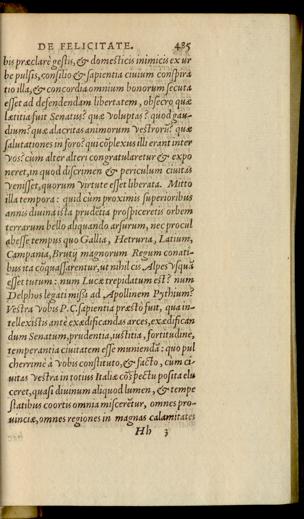 DE FELICITATE. 485
bis præclarè gestis, & domesticis inimicis ex ur
be pulsis, consilio & sapientia ciuium conspira
tio illa, & concordia omnium bonorum secuta
esset ad defendendam libertatem, obsecro quæ
lætitia fuit Senatus? quæ voluptas? quod gau-
dium? quæ alacritas animorum vestrorū? quæ
salutationes in foro? qui cōplexus illi erant inter
vos? cùm alter alteri congratularetur & expo
neret, in quod discrimen & periculum ciuitas
venisset, quorum virtute esset liberata. Mitto
illa tempora: quid cùm proximis superioribus
annis diuina ista prudētia prospiceretis orbem
terrarum bello aliquando arsurum, nec procul
abesse tempus quo Gallia, Hetruria, Latium,
Campania, Brutij magnorum Regum conati-
bus ita cōquassarentur, ut nihil cis Alpes vsquā
esset tutum: num Lucæ trepidatum est? num
Delphos legati missi ad Apollinem Pythium?
Vestra vobis P.C. sapientia præstò fuit, qua in-
tellexistis antè exædificandas arces, exædifican
dum Senatum, prudentia, iustitia, fortitudine,
temperantia ciuitatem esse muniendā: quo pul
cherrimè à vobis constituto, & facto, cùm ci
uitas vestra in totius Italiæ cōspectu posita elu
ceret, quasi diuinum aliquod lumen, & tempe
statibus coortis omnia miscerētur, omnes pro-
uinciæ, omnes regiones in magnas calamitates
Hh 3